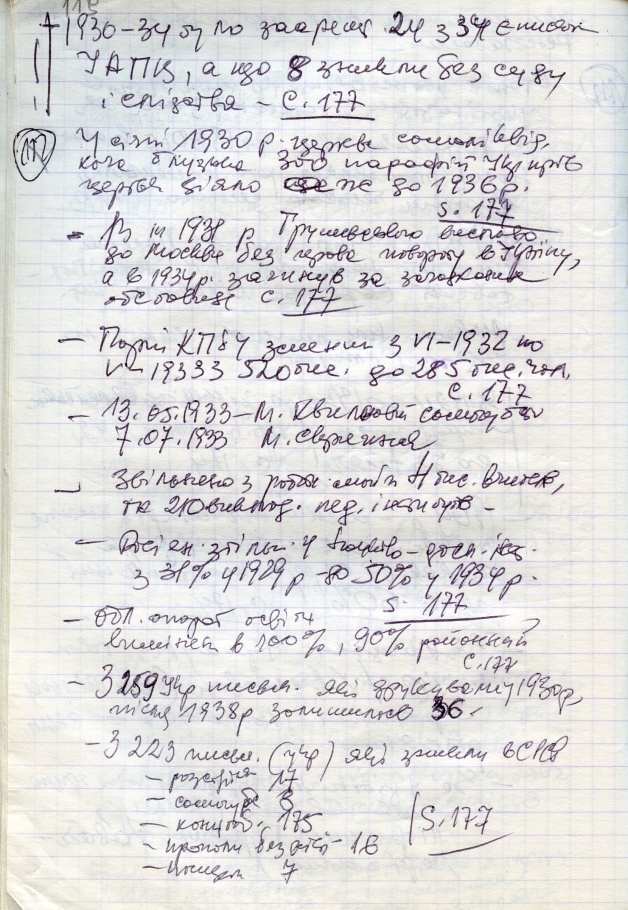 118
1930-34 було заарешт. 24 з 34 єписк.
УАПЦ, а що 8 зникли без суду
і слідства - С. 177
177
У січні 1930 р. церква самоліквід.
300 парафій Укр.
церкви діяло ще до 1936 р.
S. 177
- В 1931 р Грушевського вислано
до Москви без права повороту в Україну,
а в 1934 р. загинув за загадкових
обставин С. 177
- Партія КПбУ зменш з VI-1932 по
1933 З 520 тис. до 285 тис. чол.
С. 177
- 13.05.1933 - М. Хвильовий самогубст
7.07.1933 М. Скрипника
- Звільнено з робот 4 тис. вчител,
та 210 виклад. пед. інститутів -
- Росіян збільш. у
з 31% у 1929 р - до 50% у 1934 р.
S. 177
- Обл. апарат освіти
вимінен в 100%, 90% районний
С. 177
- З 259 Укр письм. які друкувались у 1930 р,
після 1938 р залишилось 36.
- З 223 письм. (укр) які зникли в СРСР
- розстріл 17
- самогуб 8
- концтаб. 175
- пропали без вісті 16
- померл 7
S. 177